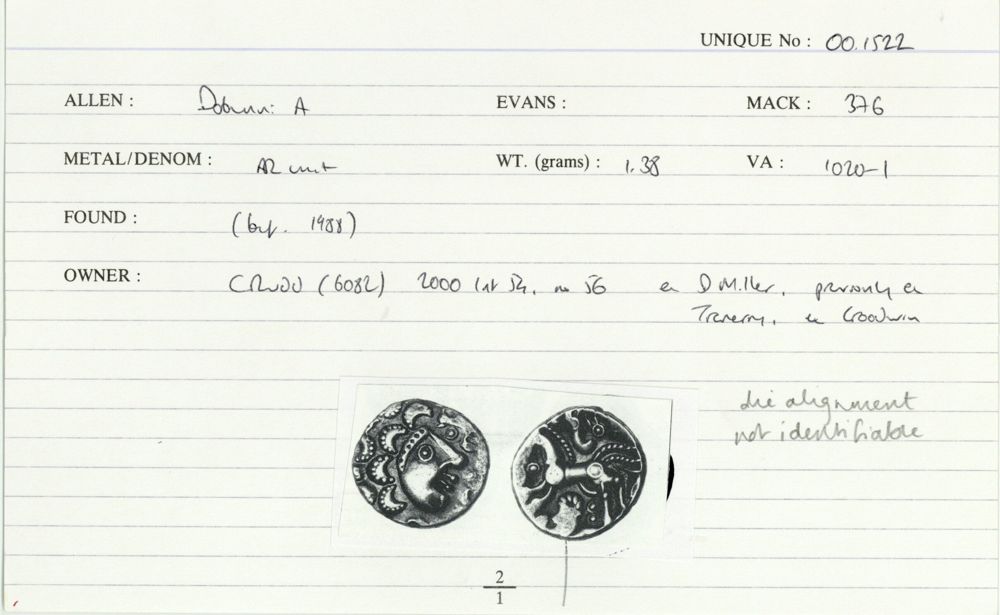 UNIQUE No : 00.1522
ALLEN : Dobunni A EVANS : MACK : 376
METAL/DENOM : AR unit WT. (grams) : 1.38 VA : 1020-1
FOUND : (bef. 1988)
OWNER : CRUDD (6082) 2000 list 54, no 56 ex D Miller, previously ex
ex Goodwin
die alignment
not identifiable
2
1